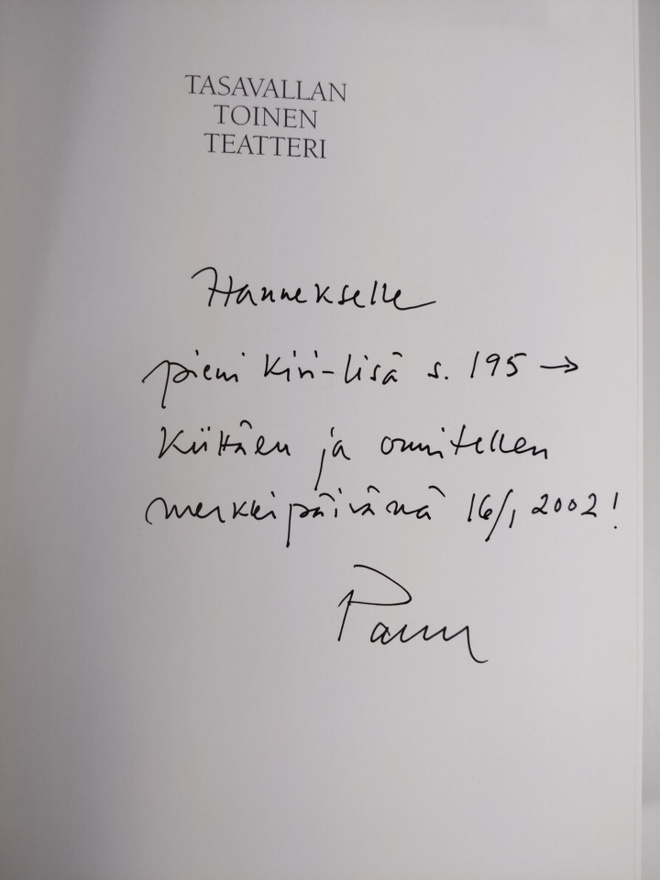 TASAVALLAN
TOINEN
TEATTERI
Hannekselle
pieni Kivi-lisä s. 195 →
Kiittäen ja onnitellen
merkkipäivänä 16/1 2002!
Panu